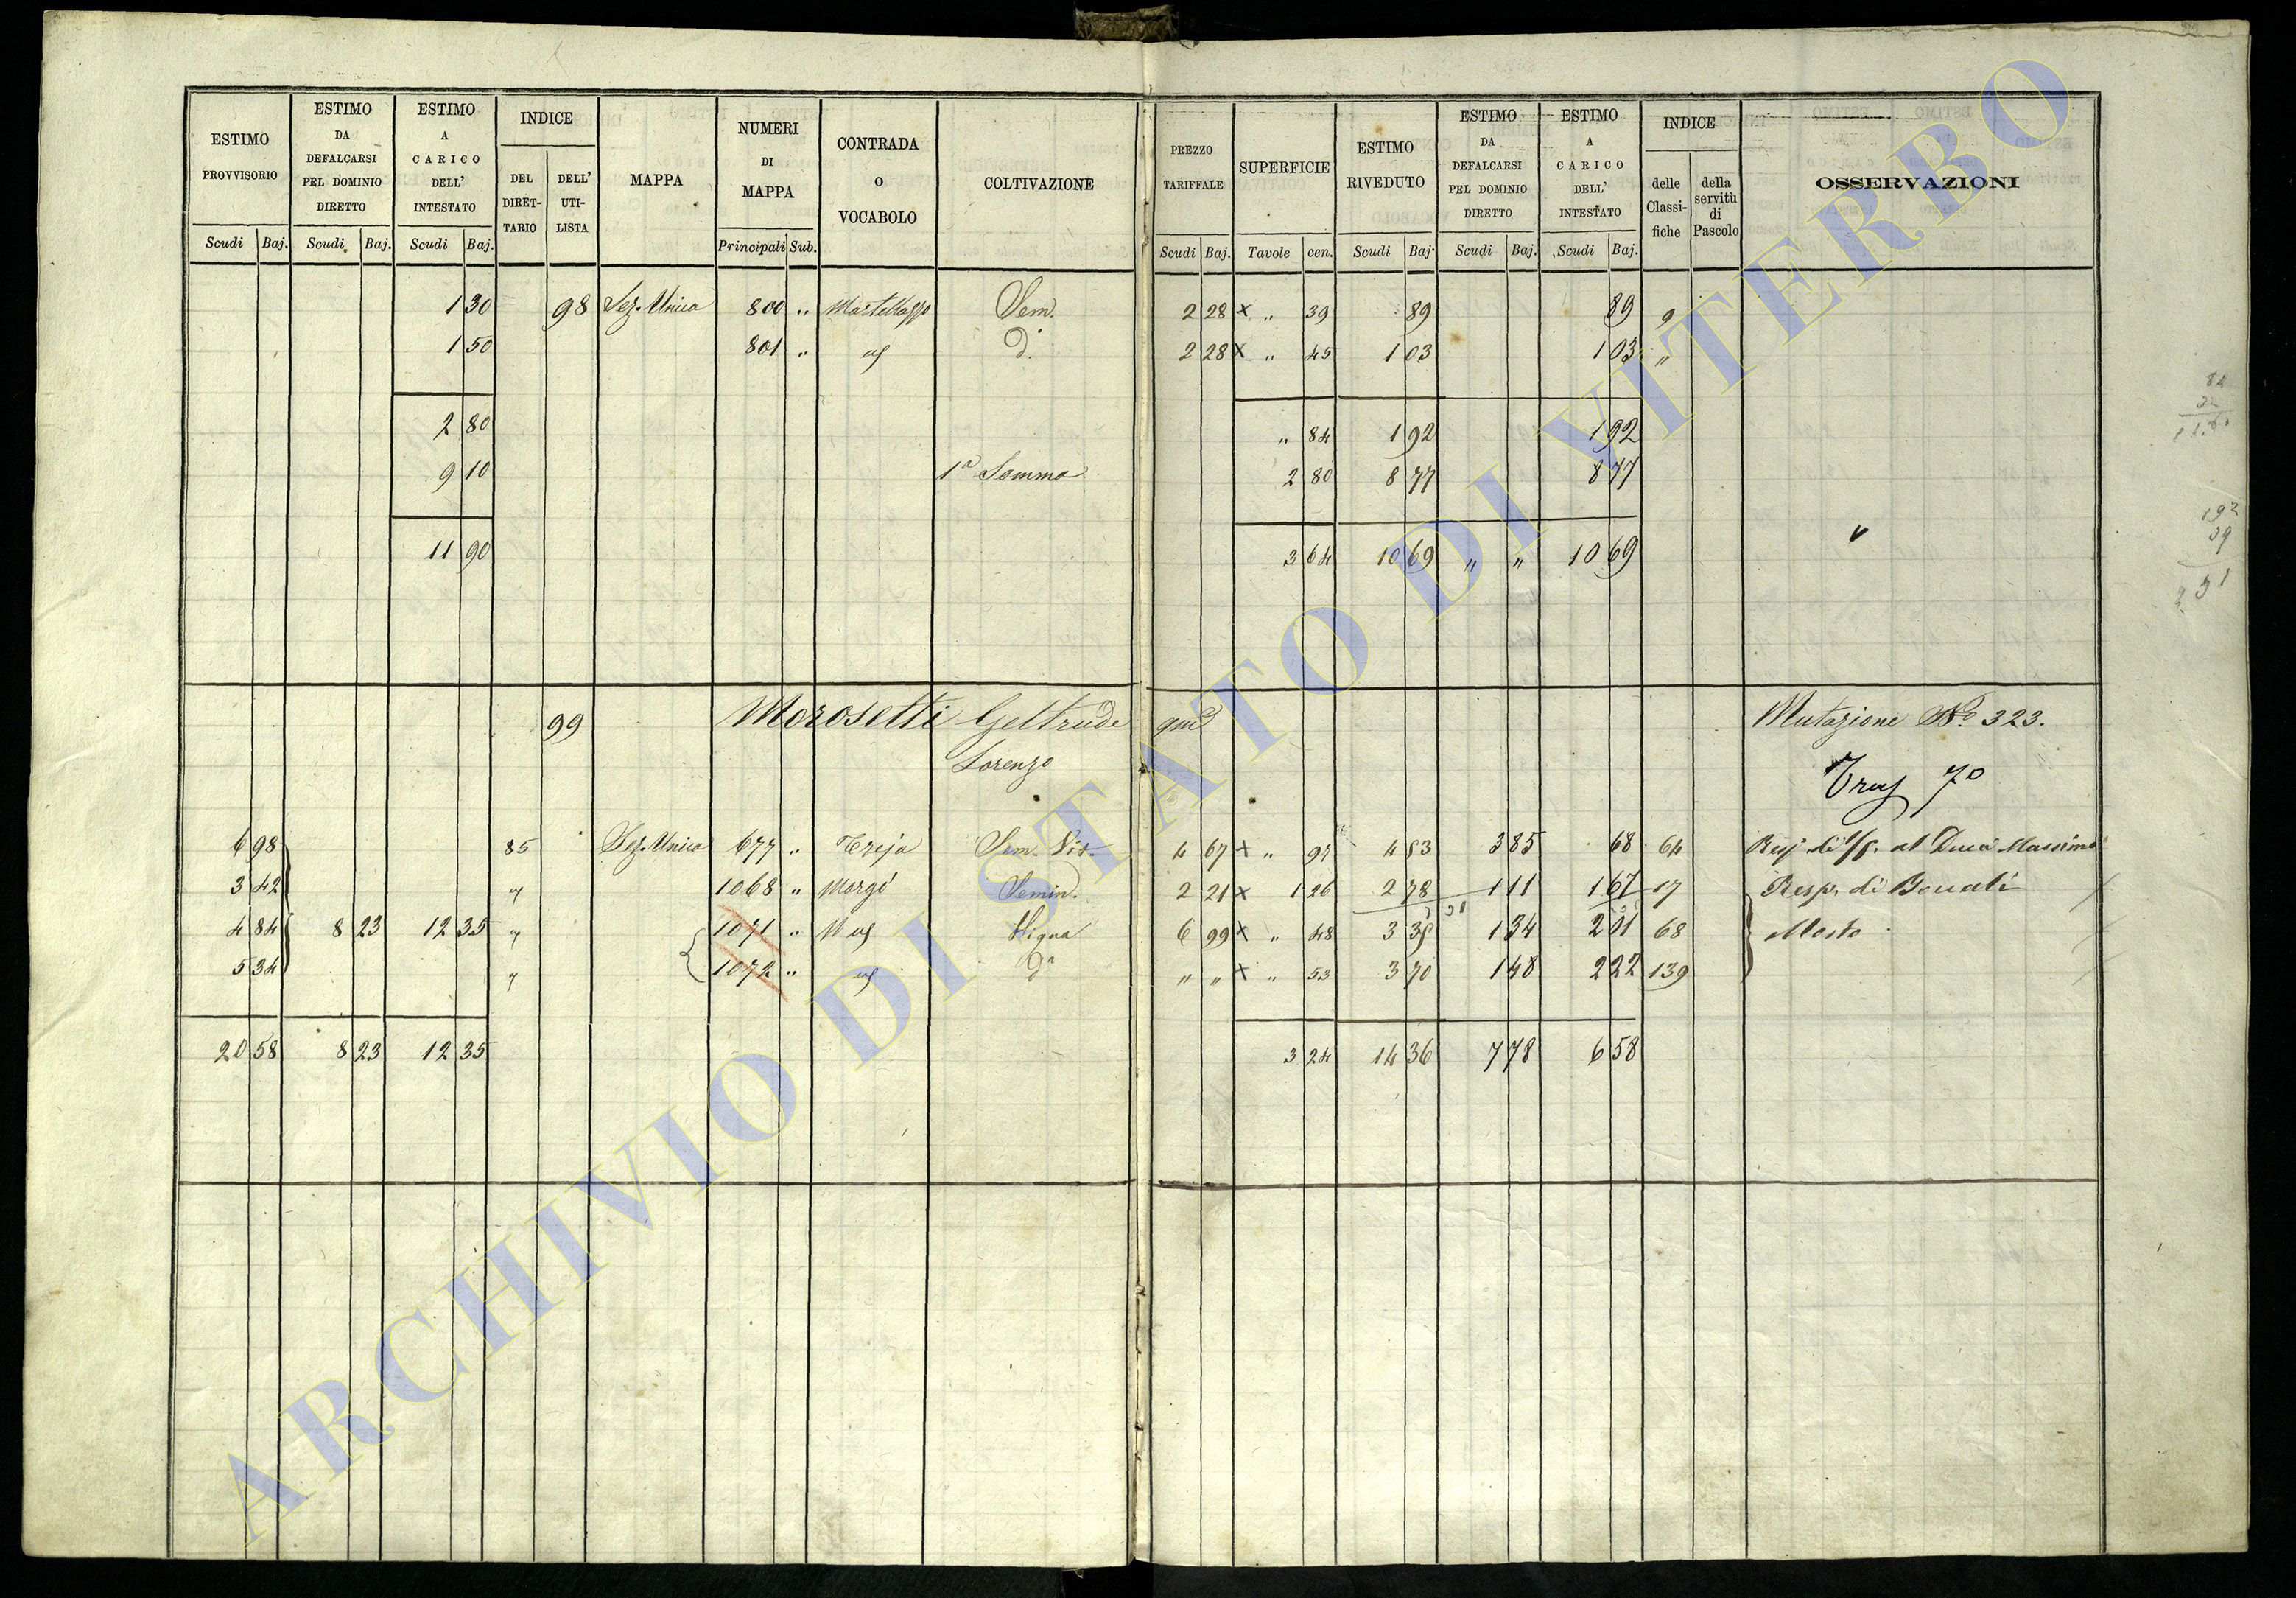 ESTIMO PROVVISORIO
ESTIMO DA DEFALCARSI PEL DOMINIO DIRETTO
ESTIMO A CARICO DELL' INTESTATO
INDICE
DEL DIRET-TARIO
DELL' UTI-LISTA
MAPPA
NUMERI DI MAPPA
CONTRADA O VOCABOLO
COLTIVAZIONE
PREZZO TARIFFALE
SUPERFICIE
ESTIMO RIVEDUTO
ESTIMO DA DEFALCARSI PEL DOMINIO DIRETTO
ESTIMO A CARICO DELL' INTESTATO
INDICE
delle Classi-fiche
della servitù di Pascolo
OSSERVAZIONI
Scudi Baj. Scudi Baj. Scudi Baj. Principali Sub. Scudi Baj. Tavole cen. Scudi Baj. Scudi Baj. Scudi Baj.
1 30 98 Sez. Unica 800 " Sem. 2 28 x " 39 89 89 9
1 50 801 " D. 2 28 x " 45 1 03 1 03 "
2 80 " 84 1 92 1 92
9 10 1a Somma 2 80 8 77 8 77
11 90 3 64 10 69 " " 10 69
99 Morosetti Geltrude qm Mutazione No. 323.
Lorenzo
7o
6 98 85 Sez. Unica 677 " Treja Sem. Vit. 4 67 x " 97 4 53 3 85 68 64
3 42 " 1068 " Morgi Semin. 2 21 x 1 26 2 78 1 11 1 67 17 Resp. di
4 84 8 23 12 35 " 1071 " Vigna 6 99 x " 48 3 35 1 34 2 01 68 Mosto
5 34 " 1072 " Da " " x " 53 3 70 1 48 2 22 139
20 58 8 23 12 35 3 24 14 36 7 78 6 58
192
39
2 31
ARCHIVIO DI STATO DI VITERBO